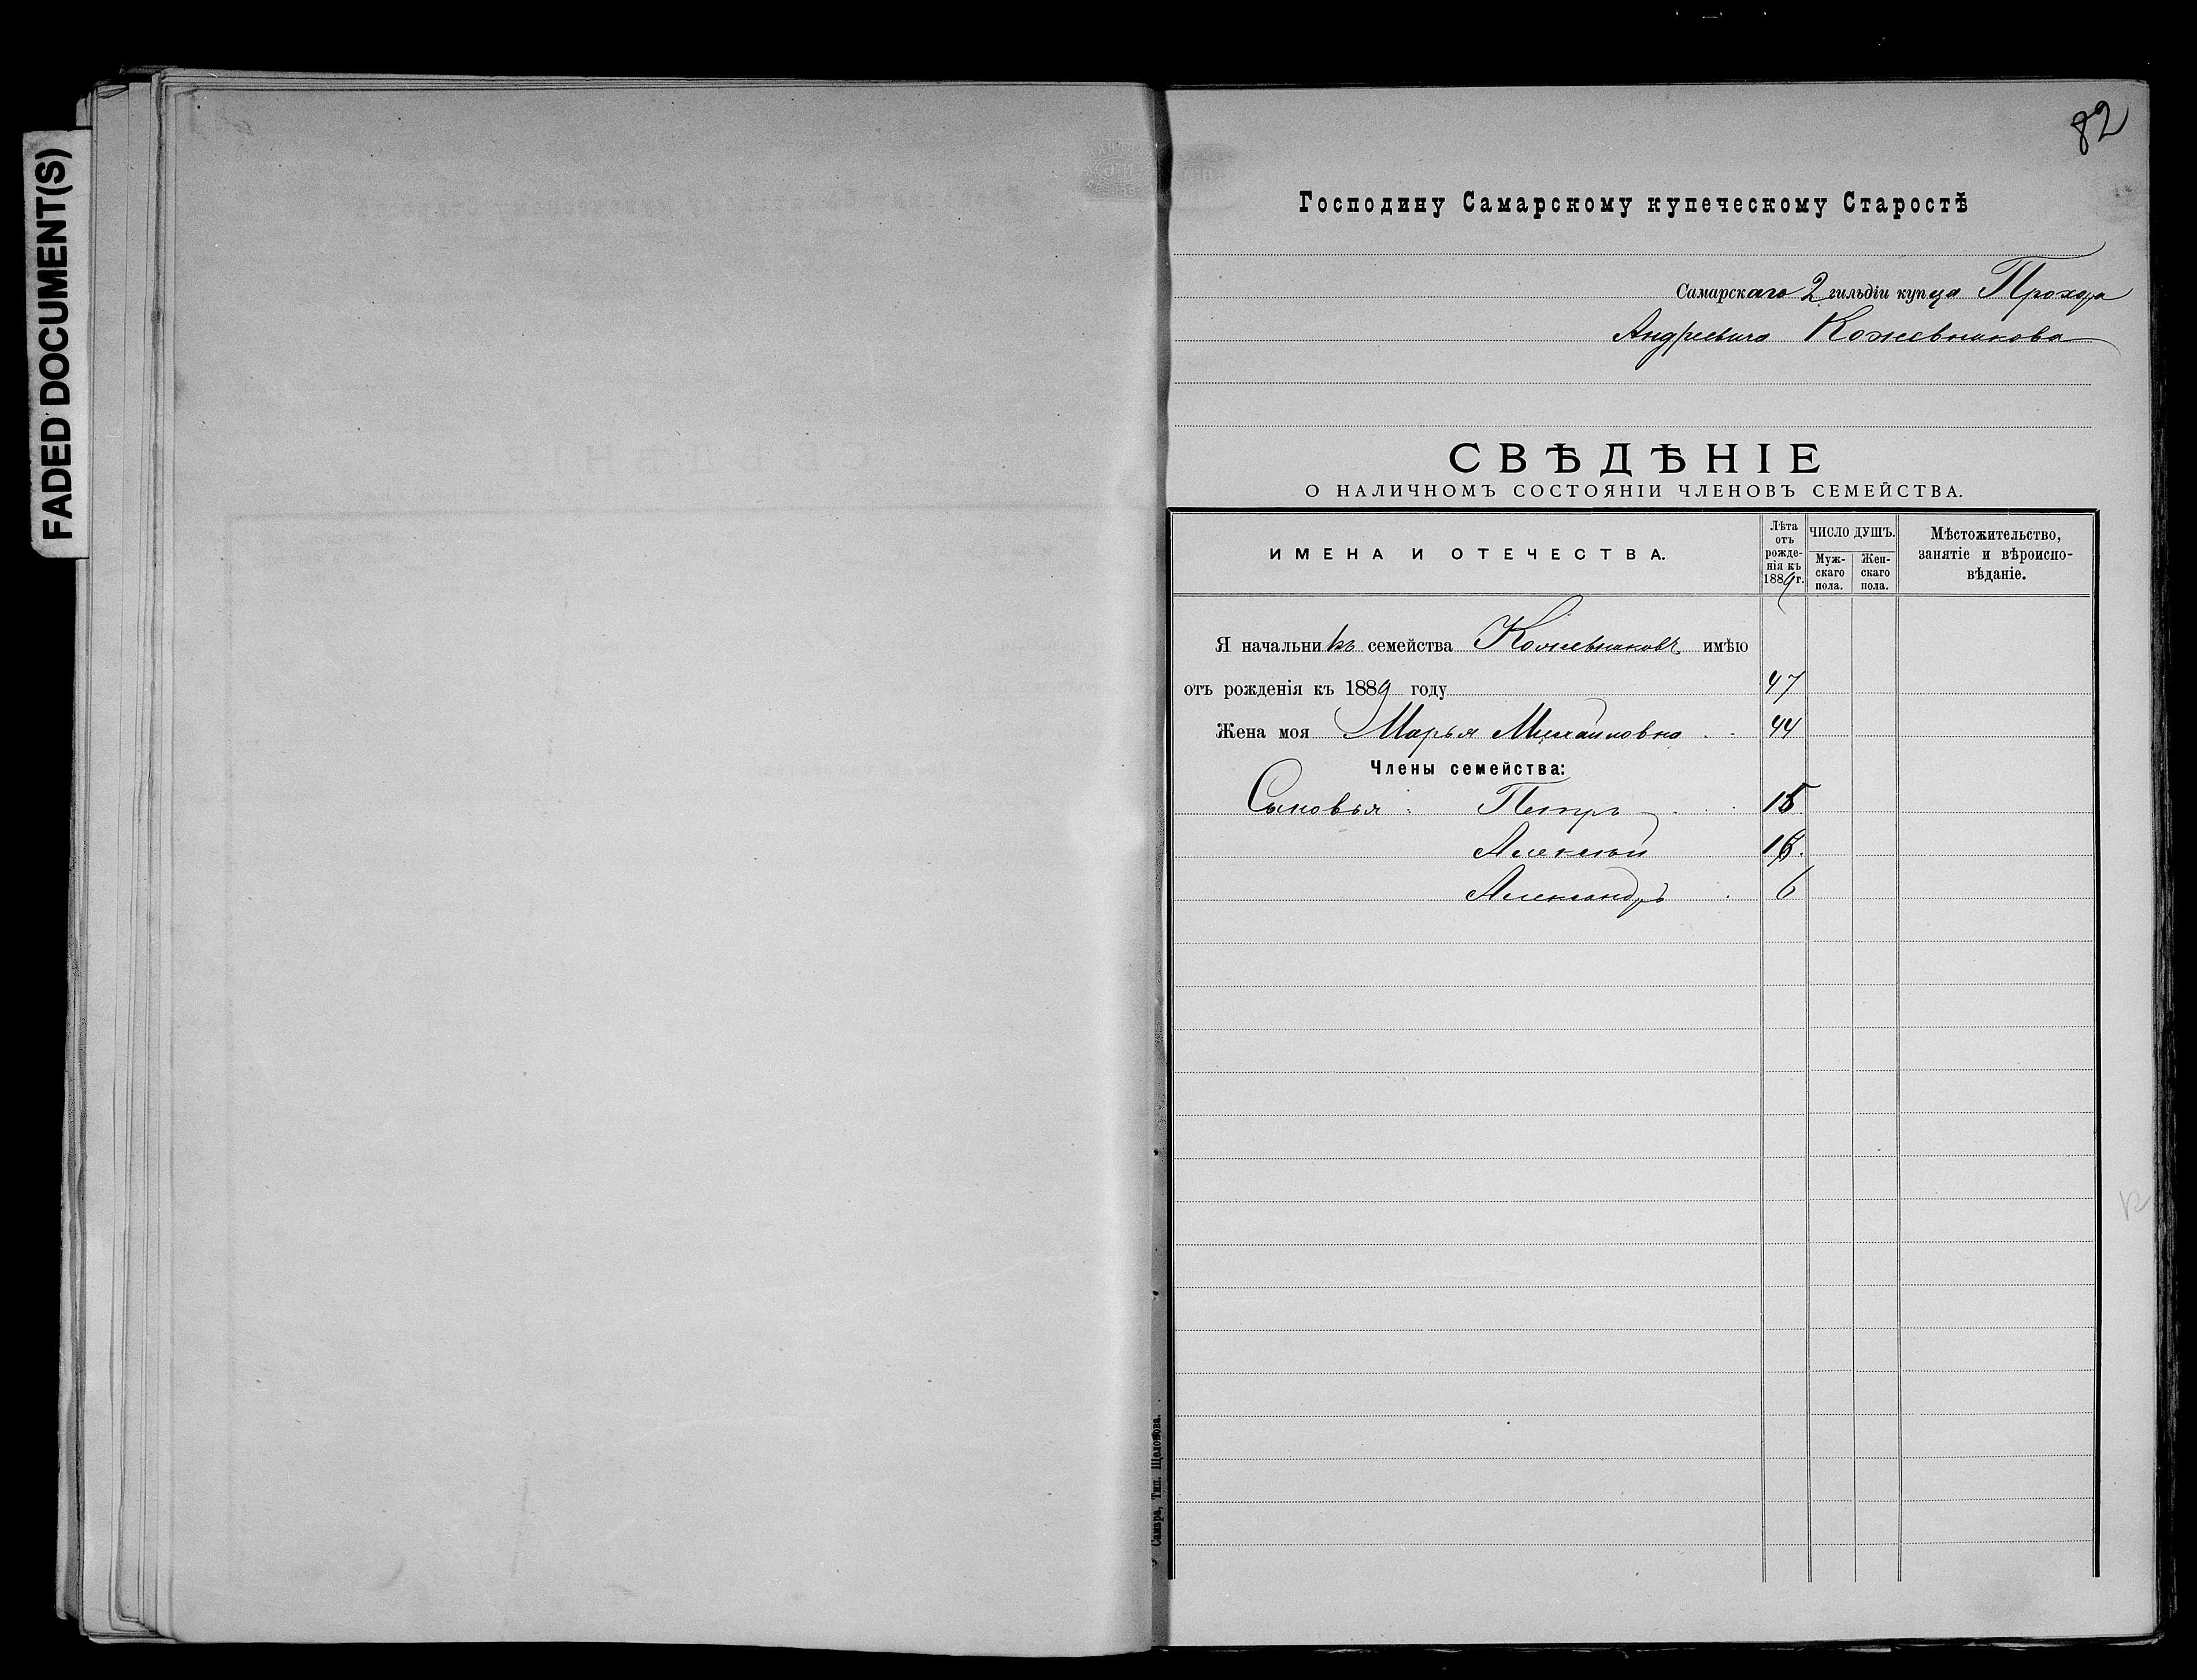 FADED DOCUMENT(S)
82
Господину Самарскому купеческому Старостѣ
Самарскаго 2 гильдіи купца Прохора
Андреевича Кожевникова
СВѢДѢНІЕ
О НАЛИЧНОМЪ СОСТОЯНІИ ЧЛЕНОВЪ СЕМЕЙСТВА.
ИМЕНА И ОТЕЧЕСТВА.
Лѣта отъ рожде- нія къ 1889 г.
ЧИСЛО ДУШЪ.
Муж- скаго пола.
Жен- скаго пола.
Мѣстожительство, занятіе и вѣроиспо- вѣданіе.
Я начальникъ семейства Кожевниковъ имѣю
отъ рожденія къ 1889 году 47
Жена моя Марья Михайловна 44
Члены семейства:
Сыновья: Петръ
Алексѣй
Александръ 6
Самара, Тип. Щелокова.